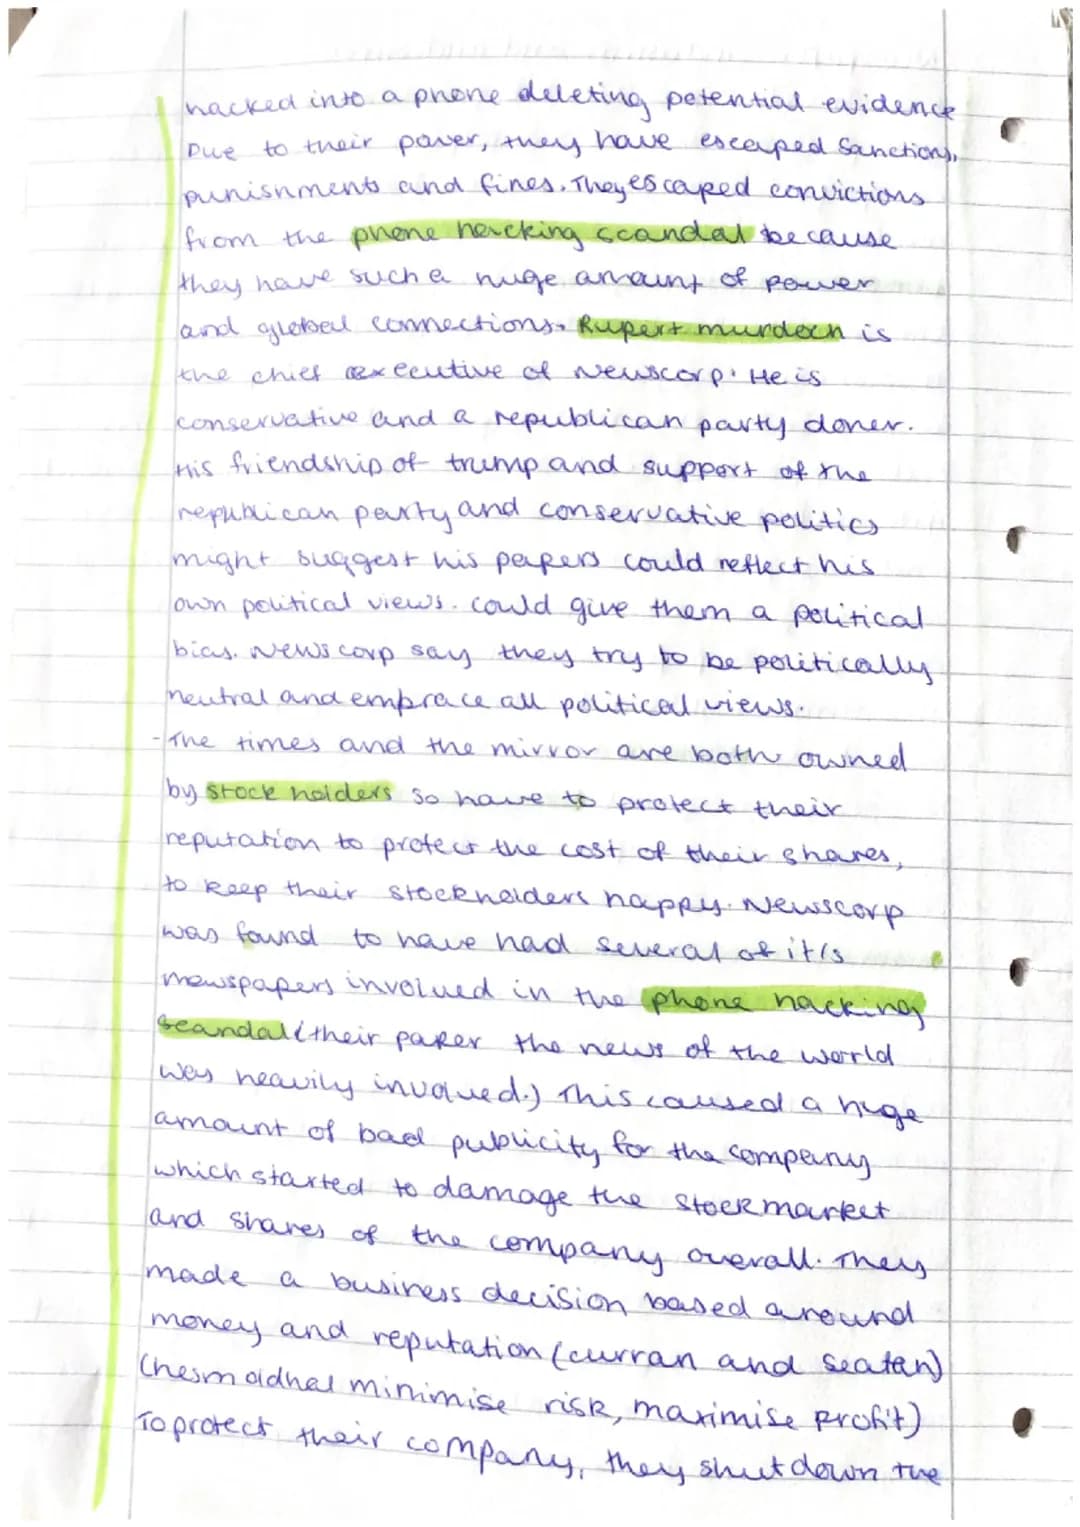 hacked into a phone deleting potential evidence
Due to their power, they have escaped sanctions,
punishments and fines. They escaped convictions
from the phone hacking scandal because
they have such a huge amount of power
and global connections. Rupert murdoch is
the chief executive of Newscorp. He is
conservative and a republican party doner.
His friendship of trump and support of the
republican party and conservative politics
might suggest his papers could reflect his
own political views. could give them a political
bias. Newscorp say they try to be politically
neutral and embrace all political views.
- The times and the mirror are both owned
by stock holders so have to protect their
reputation to protect the cost of their shares,
to keep their stockholders happy. Newscorp
was found to have had several of it's
newspapers involved in the phone hacking
scandal (their paper the news of the world
was heavily involved.) This caused a huge
amount of bad publicity for the company
which started to damage the stock market
and shares of the company overall. They
made a business decision based around
money and reputation (curran and seaten)
(hesmoldhal minimise risk, maximise profit)
To protect their company, they shut down the